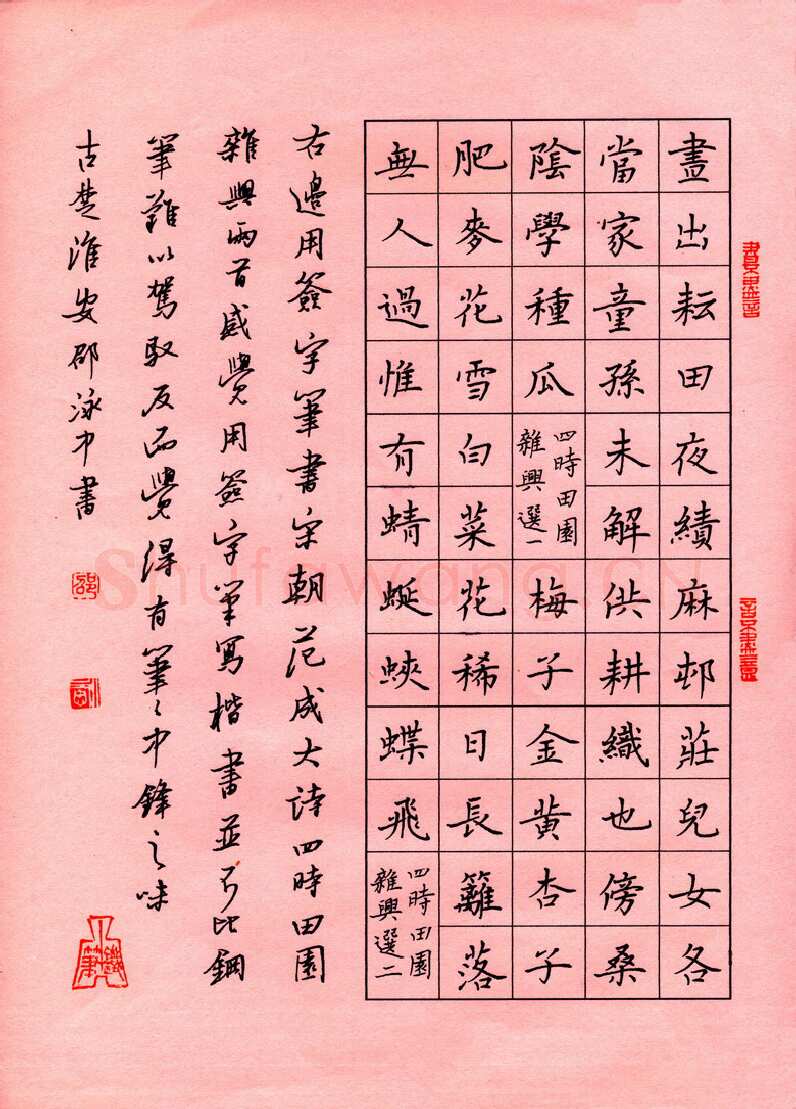 晝出耘田夜績麻邨莊兒女各
當家童孫未解供耕織也傍桑
陰學種瓜
四時田園
雜興選一
梅子金黃杏子
肥麥花雪白菜花稀日長籬落
無人過惟有蜻蜓蛺蝶飛
四時田園
雜興選二
右邊用簽字筆書宋朝范成大詩四時田園
雜興兩首感覺用簽字筆寫楷書並不比鋼
筆難以駕馭反而覺得有筆〻中鋒之味
古楚淮安邵泳中書
邵
Shufawang.CN